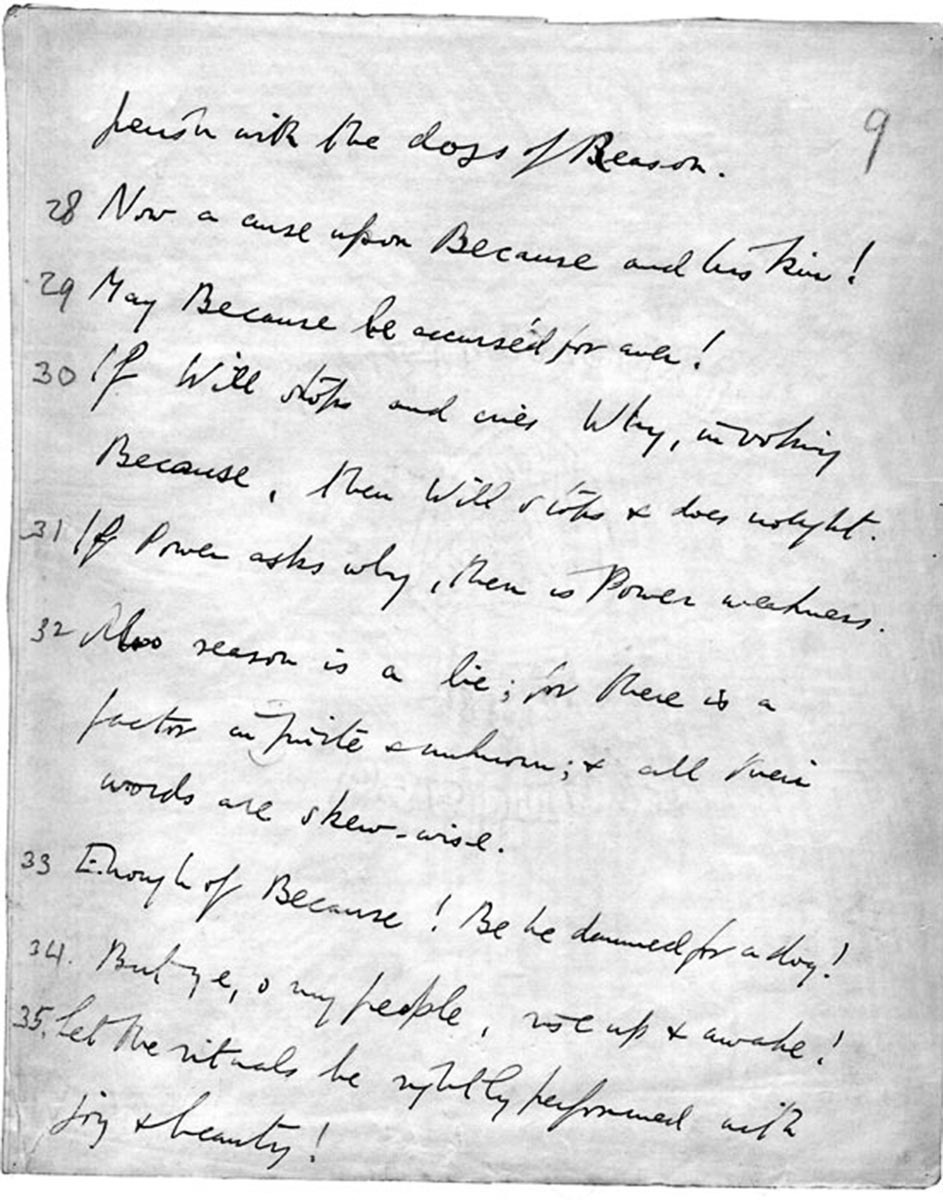 9
perish with the dogs of Reason.
28 Now a curse upon Because and his kin!
29 May Because be accursèd for ever!
30 If Will stops and cries Why, invoking
Because, then Will stops & does nought.
31 If Power asks why, then is Power weakness.
32 Also reason is a lie; for there is a
factor infinite & unknown; & all their
words are skew-wise.
33 Enough of Because! Be he damned for a dog!
34. But ye, o my people, rise up & awake!
35. Let the rituals be rightly performed with
joy & beauty!